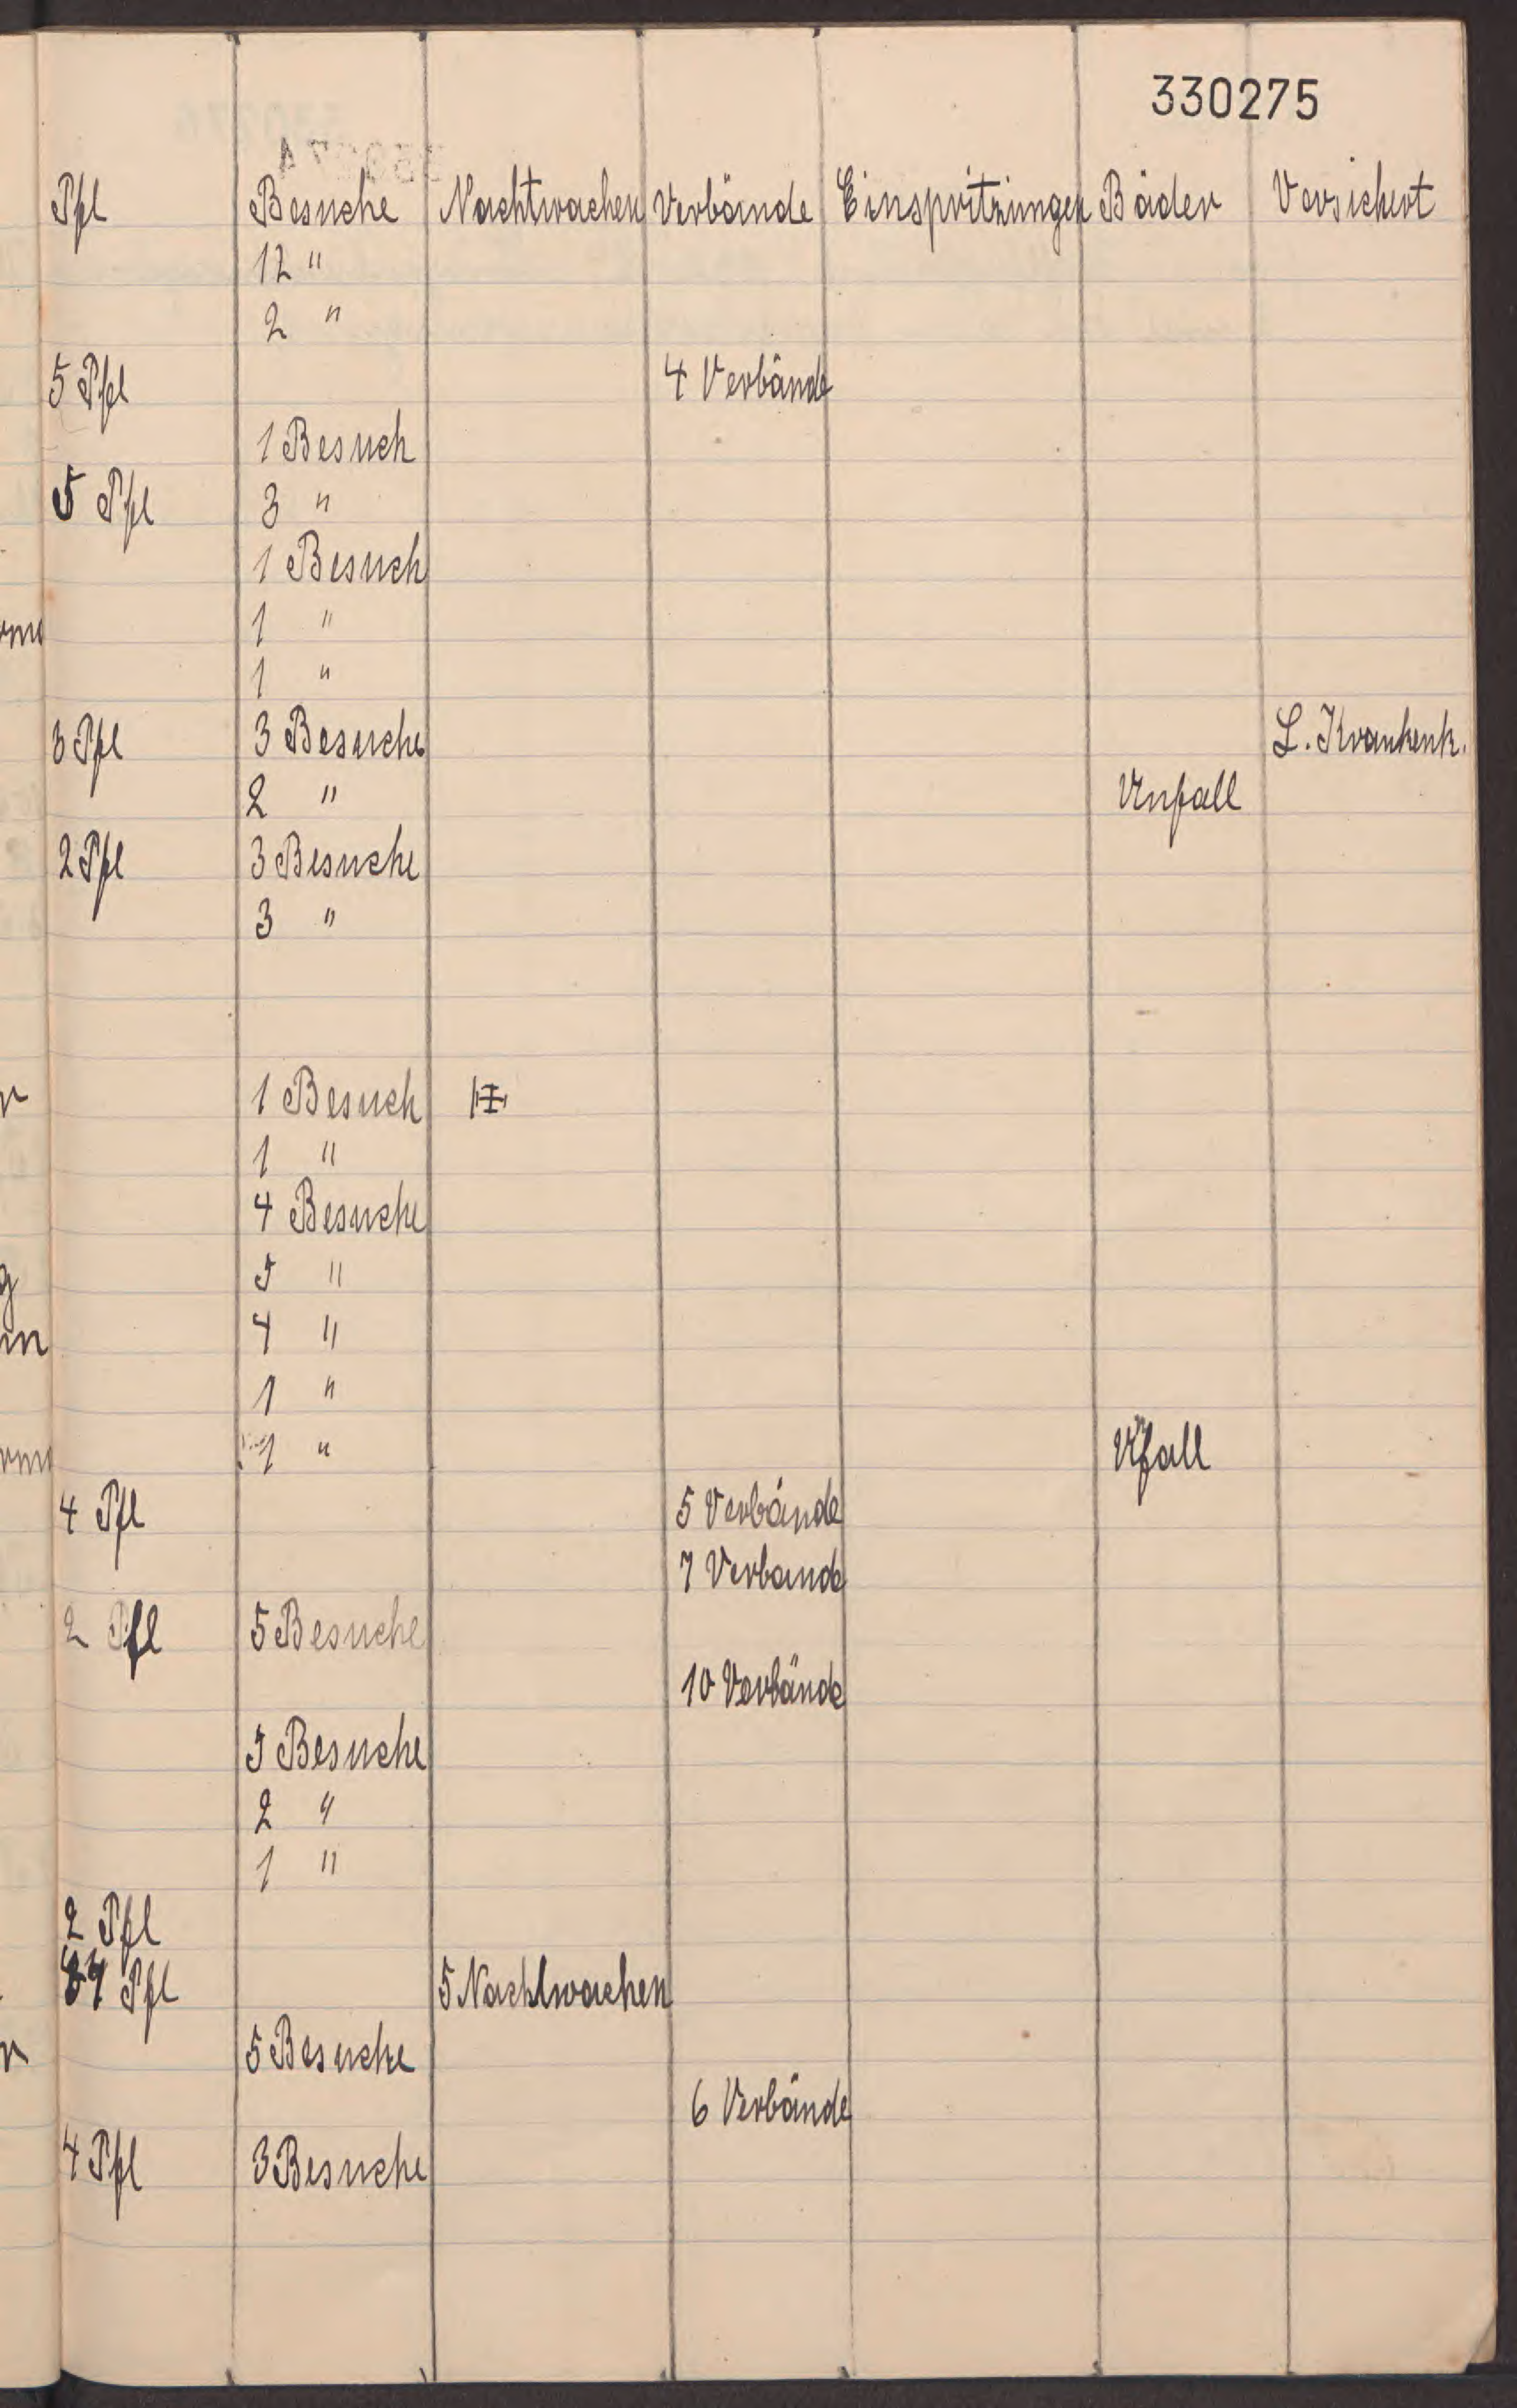 330275
Pfl Besuche Nachtwachen Verbände Einspritzungen Bäder Versichert
12 "
2 "
5 Pfl 4 Verbände
1 Besuch
5 Pfl 3 "
1 Besuch
1 "
1 "
3 Pfl 3 Besuche L. Krankenk.
2 " Unfall
2 Pfl 3 Besuche
3 "
1 Besuch
1 "
4 Besuche
5 "
4 "
1 "
1 " Unfall
4 Pfl 5 Verbände
7 Verbande
2 Pfl 5 Besuche
10 Verbände
5 Besuche
2 "
1 "
2 Pfl
Pfl 5 Nachtwachen
5 Besuche
6 Verbände
4 Pfl 3 Besuche